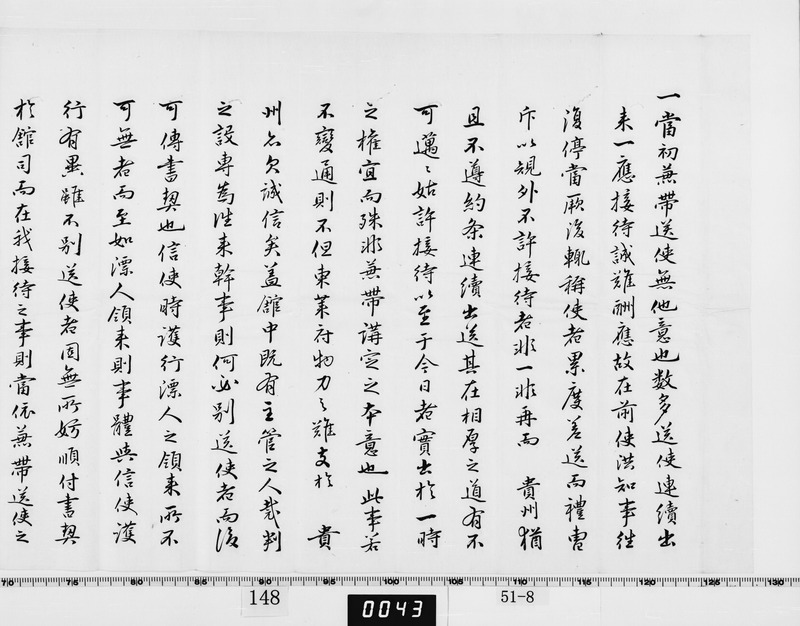 一當初兼帶送使無他意也数多送使連續出
来一應接待誠難酬應故在前使洪知事往
復停當厥後輒稱使者累度差送而禮曺
斥以規外不許接待者非一非再而　貴州猶
且不遵約条連續出送其在相厚之道有不
可邁〻姑許接待以至于今日者實出於一時
之權宜而殊非兼帶講定之本意也此事若
不變通則不但東莱府物力之難支於　貴
州亦欠誠信矣盖舘中既有主管之人裁判
之設專為徃来幹事則何必別送使者而後
可傳書契也信使時護行漂人之領来所不
可無者而至如漂人領来則事體與信使護
行有異雖不別送使者固無所妨順付書契
於舘司而在我接待之事則當依兼帶送使之
70 75 80 85 90 95 100 105 110 115 120 125 130
148
0043
51-8